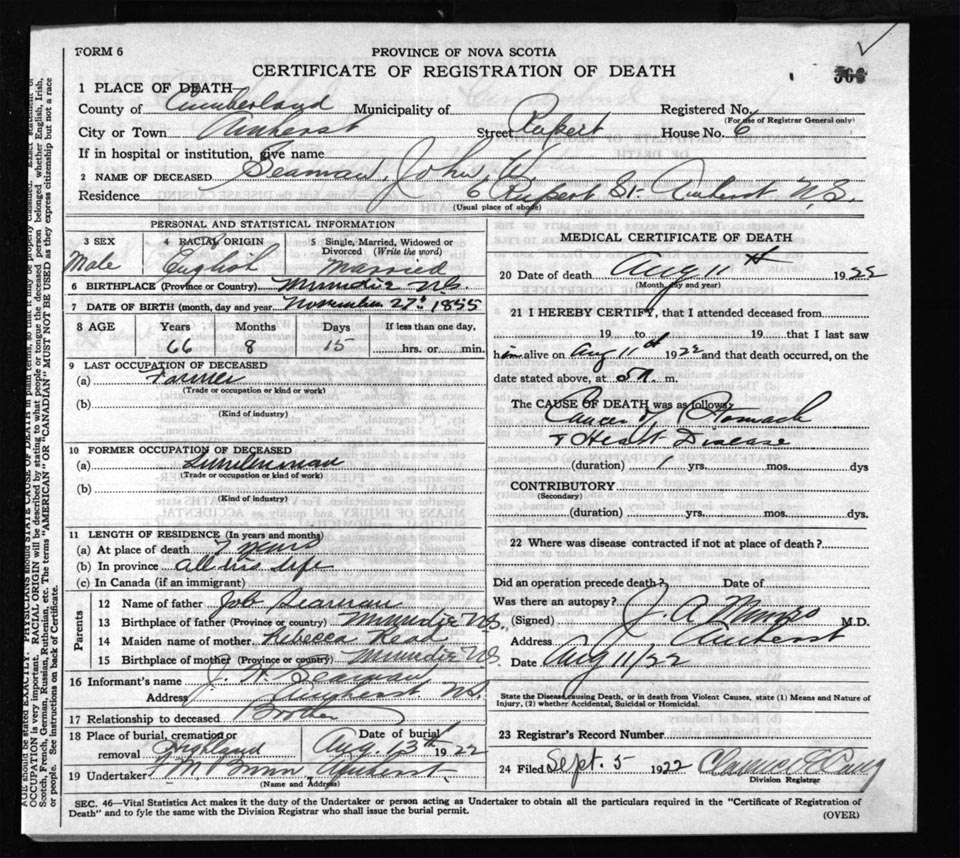 FORM 6
PROVINCE OF NOVA SCOTIA
CERTIFICATE OF REGISTRATION OF DEATH
1 PLACE OF DEATH—
County of Cumberland Municipality of Registered No.
(For use of Registrar General only)
City or Town Amherst Street Rupert House No. 6
If in hospital or institution, give name
2 NAME OF DECEASED Seaman, John W.
Residence 6 Rupert St. Amherst N.S.
(Usual place of abode)
PERSONAL AND STATISTICAL INFORMATION
3 SEX Male
4 RACIAL ORIGIN English
5 Single, Married, Widowed or Divorced (Write the word) Married
6 BIRTHPLACE (Province or Country) Minudie N.S.
7 DATE OF BIRTH (month, day and year) November 27th 1855
8 AGE Years Months Days If less than one day,
66 8 15 hrs. or min.
9 LAST OCCUPATION OF DECEASED
(a) Farmer
(Trade or occupation or kind or work)
(b)
(Kind of industry)
10 FORMER OCCUPATION OF DECEASED
(a) Lumberman
(Trade or occupation or kind of work)
(b)
(Kind of industry)
11 LENGTH OF RESIDENCE (In years and months)
(a) At place of death 7 years
(b) In province all his life
(c) In Canada (if an immigrant)
Parents
12 Name of father Job Seaman
13 Birthplace of father (Province or country) Minudie N.S.
14 Maiden name of mother Rebecca Read
15 Birthplace of mother (Province or country) Minudie N.S.
16 Informant's name Seaman
Address Amherst N.S.
17 Relationship to deceased Brother
18 Place of burial, cremation or removal Highland
Date of burial Aug. 13th 1922
19 Undertaker Amherst
(Name and Address)
MEDICAL CERTIFICATE OF DEATH
20 Date of death Aug 11th 1922
(Month, day and year)
21 I HEREBY CERTIFY, that I attended deceased from
19 to 19 that I last saw
him alive on Aug 11th 1922 and that death occurred, on the
date stated above, at 5 A. m.
The CAUSE OF DEATH was as follows:
Cancer of Stomach
& Heart Disease
(duration) 1 yrs. mos. dys
CONTRIBUTORY
(Secondary)
(duration) yrs. mos. dys.
22 Where was disease contracted if not at place of death?
Did an operation precede death? Date of
Was there an autopsy?
(Signed) J. A. Munro M.D.
Address Amherst
Date Aug 11/22
State the Disease causing Death, or in death from Violent Causes, state (1) Means and Nature of
Injury, (2) whether Accidental, Suicidal or Homicidal.
23 Registrar's Record Number
24 Filed Sept. 5 1922 Clarence
Division Registrar
SEC. 46—Vital Statistics Act makes it the duty of the Undertaker or person acting as Undertaker to obtain all the particulars required in the "Certificate of Registration of
Death" and to fyle the same with the Division Registrar who shall issue the burial permit.
(OVER)
AGE should be stated EXACTLY. PHYSICIANS should STATE CAUSE OF DEATH in plain terms, so that it may be properly classified. Exact statement of
OCCUPATION is very important. RACIAL ORIGIN will be described by stating to what people or tongue the deceased person belonged whether English, Irish,
Scotch, French, German, Russian, Ruthenian, etc. The terms "AMERICAN" OR "CANADIAN" MUST NOT BE USED as they express citizenship but not a race
or people. See instructions on back of Certificate.